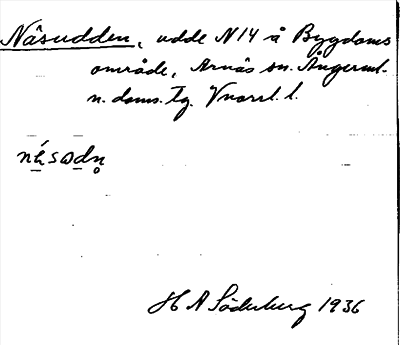 Näsudden, udde N14 å Bygdoms
område, Arnäs sn. Ångerml.
n. doms. tg. Vnorrl. l.
H A Söderberg 1936